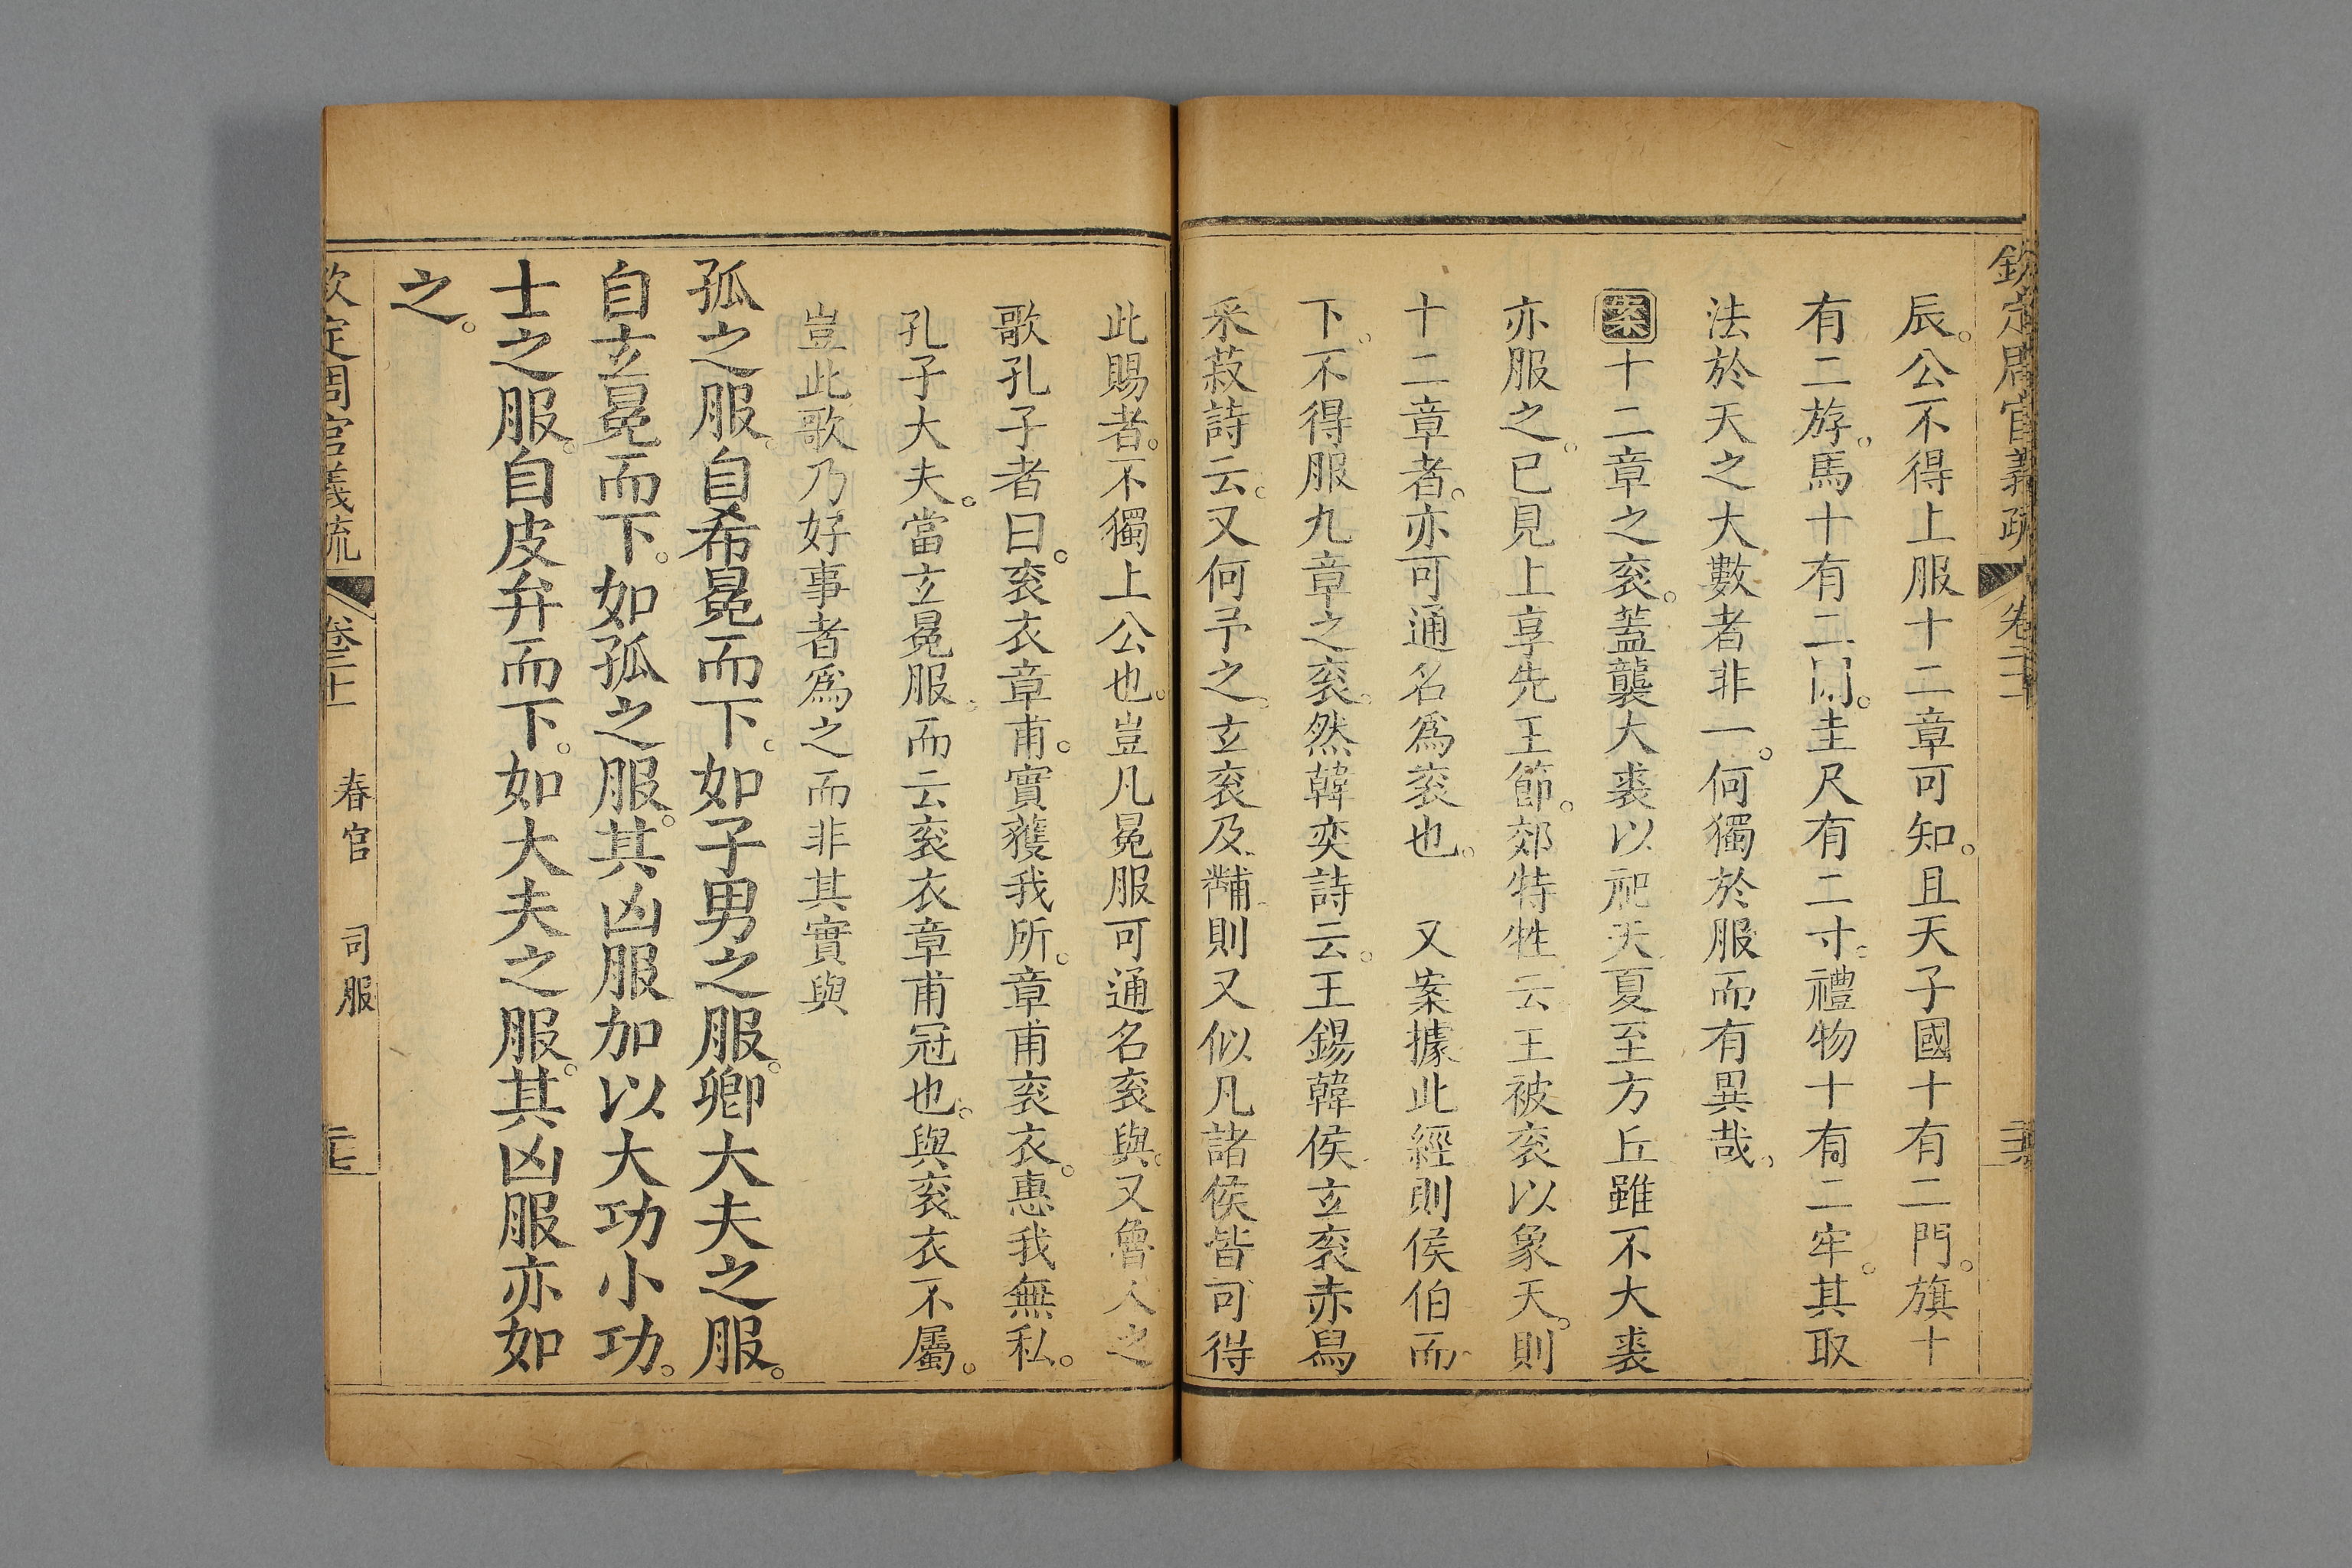 欽定周官義疏 卷二十一
辰。公不得上服十二章可知。且天子國十有二門。旗十
有二斿。馬十有二閑。圭尺有二寸。禮物十有二牢。其取
法於天之大數者非一。何獨於服而有異哉。
案十二章之衮。蓋襲大裘以祀天夏至方丘雖不大裘
亦服之。已見上享先王節。郊特牲云王被衮以象天。則
十二章者。亦可通名爲衮也。 又案據此經則侯伯而
下。不得服九章之衮。然韓奕詩云。王錫韓侯玄衮赤舄
采菽詩云。又何予之。玄衮及黼則又似凡諸侯皆可得
此賜者。不獨上公也。豈凡冕服可通名衮與。又魯人之
歌孔子者曰。衮衣章甫。實獲我所。章甫衮衣。惠我無私。
孔子大夫。當玄冕服。而云衮衣章甫冠也。與衮衣不屬。
豈此歌乃好事者爲之而非其實與
孤之服。自希冕而下。如子男之服。卿大夫之服。
自玄冕而下。如孤之服。其凶服加以大功小功。
士之服。自皮弁而下。如大夫之服。其凶服亦如
之。
欽定周官義疏 卷二十一 春官 司服 二十七